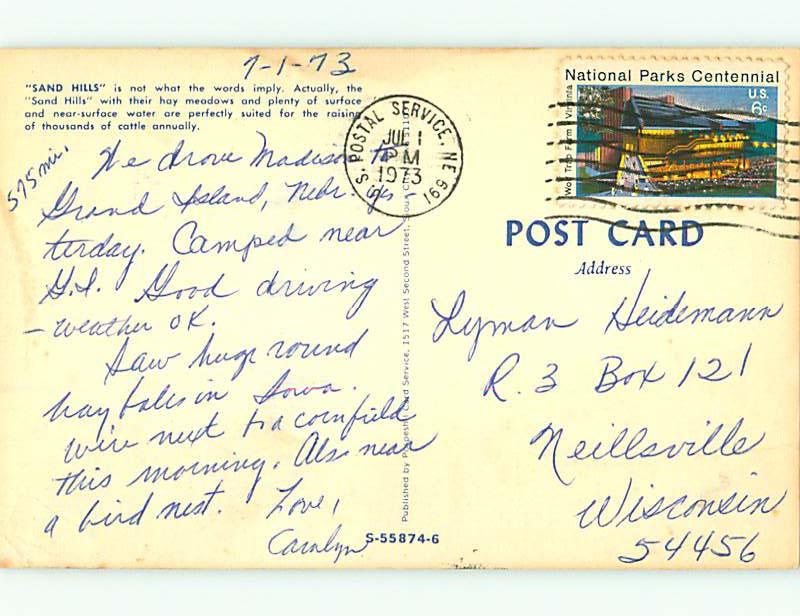 7-1-73
"SAND HILLS" is not what the words imply. Actually, the
"Sand Hills" with their hay meadows and plenty of surface
and near-surface water are perfectly suited for the raising
of thousands of cattle annually.
575 mi.
We drove Madison to
Grand Island, Nebr. yes-
terday. Camped near
G.I. Good driving
- weather OK.
Saw huge round
hay bales in Iowa.
We're next to a cornfield
this morning. Also near
a bird nest. Love,
Carolyn
S-55874-6
Card Service, 1517 West Second Street,
Published by
U.S. POSTAL SERVICE, NE 691
JUL 1
PM
1973
National Parks Centennial
U.S.
6c
Wolf Trap Farm Virginia
POST CARD
Address
Lyman Heidemann
R. 3 Box 121
Neillsville
Wisconsin
54456